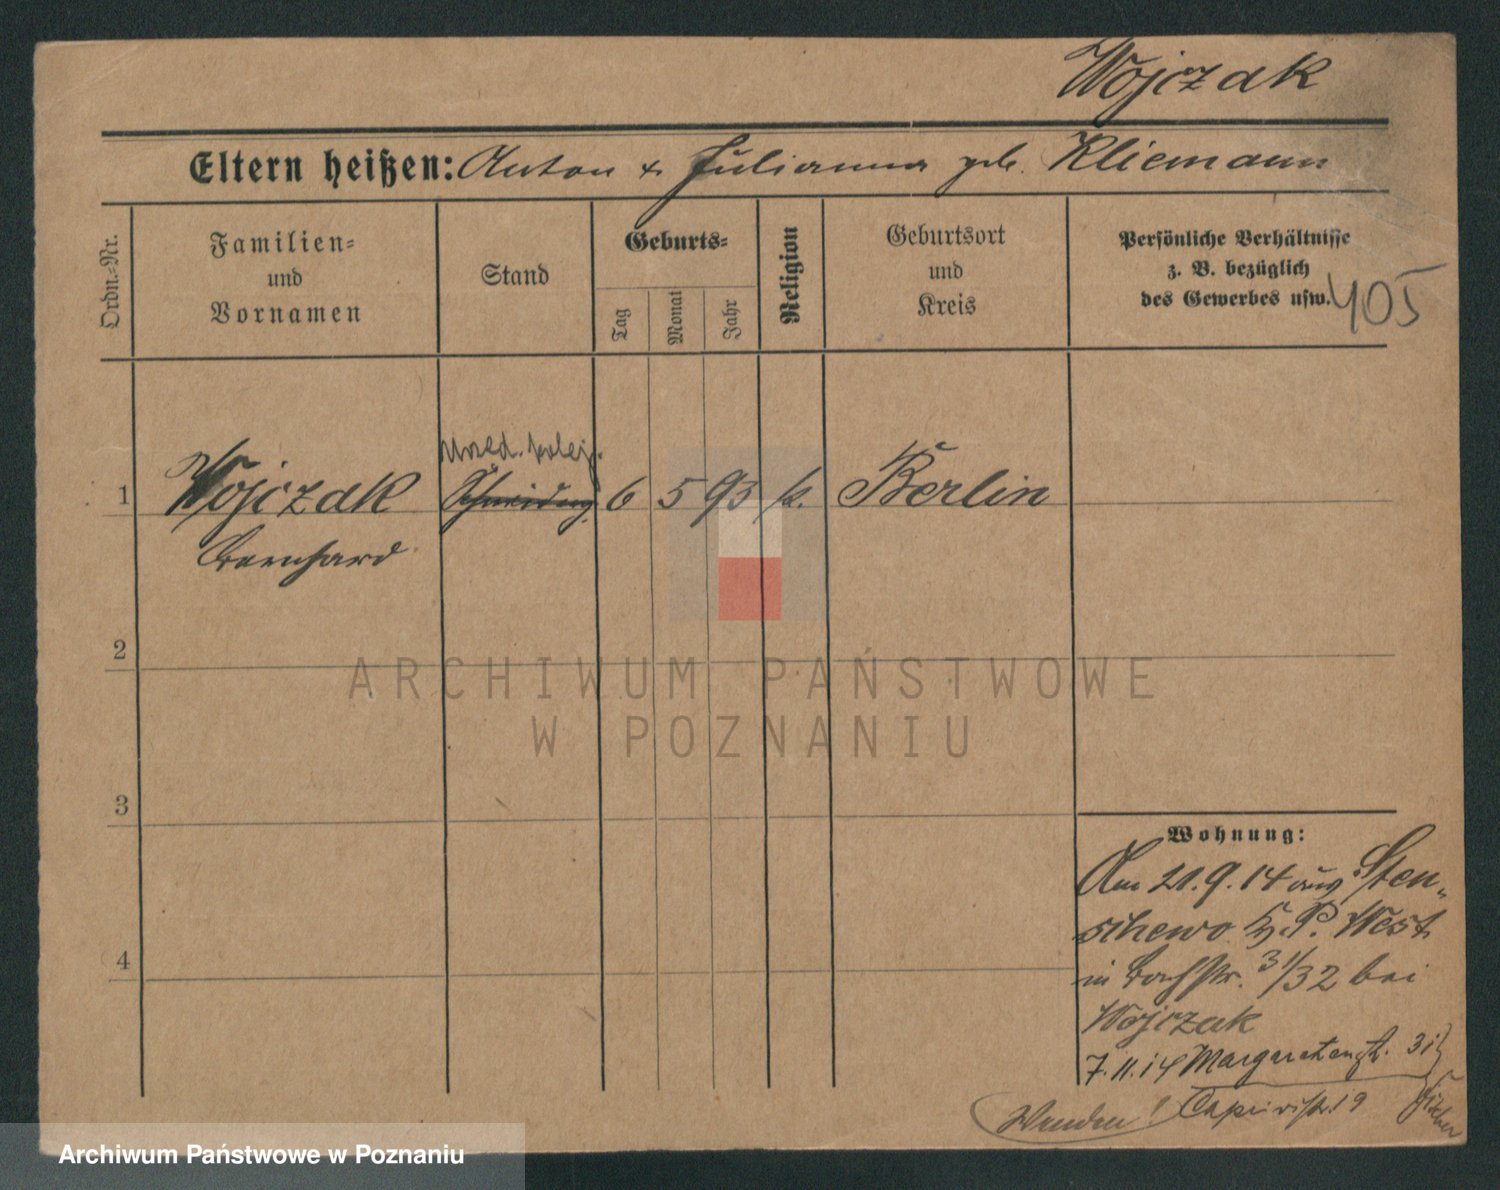 Wojczak
Eltern heißen: Anton & Julianna geb. Kliemann
Ordn.=Nr.
Familien=
und
Vornamen
Stand
Geburts=
Tag
Monat
Jahr
Religion
Geburtsort
und
Kreis
Persönliche Verhältnisse
z. B. bezüglich
des Gewerbes usw.
405
1 Wojczak 6 5 93 k. Berlin
Bernhard
2
3
4
Wohnung:
Am 21.9.14 aus Sten-
schewo Kr. P. West
in Bachstr. 31/32 bei
Wojczak
7.11.14 Margaretenstr. 31
Caprivistr. 19
Wenden!
ARCHIWUM PAŃSTWOWE
W POZNANIU
Archiwum Państwowe w Poznaniu